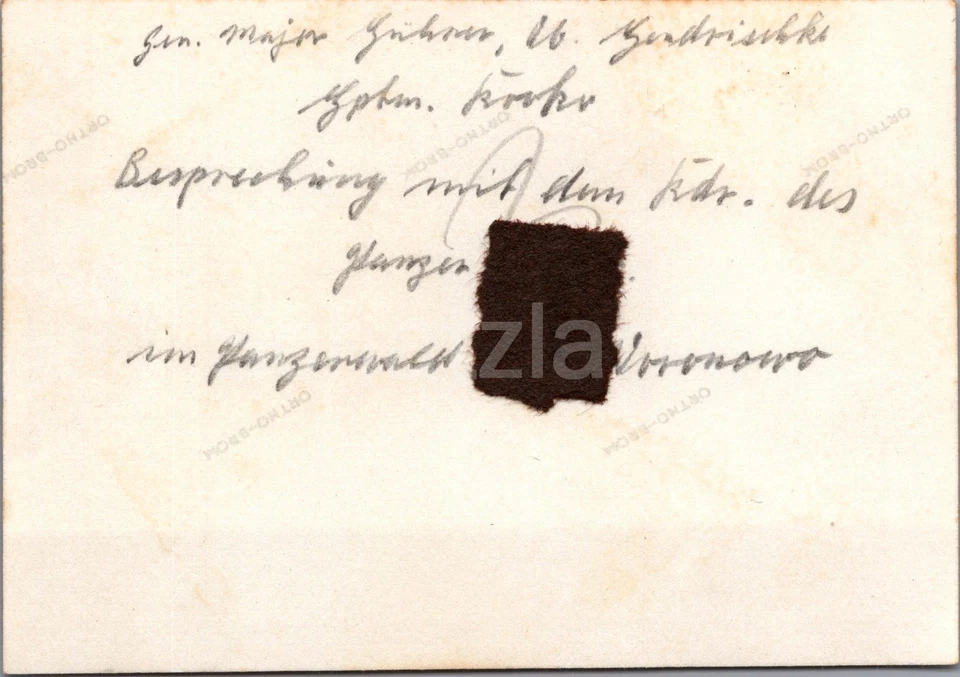 Gen. Major Hühner, Lt. Hendrischke
Hptm. Körke
Besprechung mit dem Kdr. des
Panzer
im Panzerwald Woronowo
zla
ORTHO-BROM
ORTHO-BROM
ORTHO-BROM
ORTHO-BROM
ORTHO-BROM